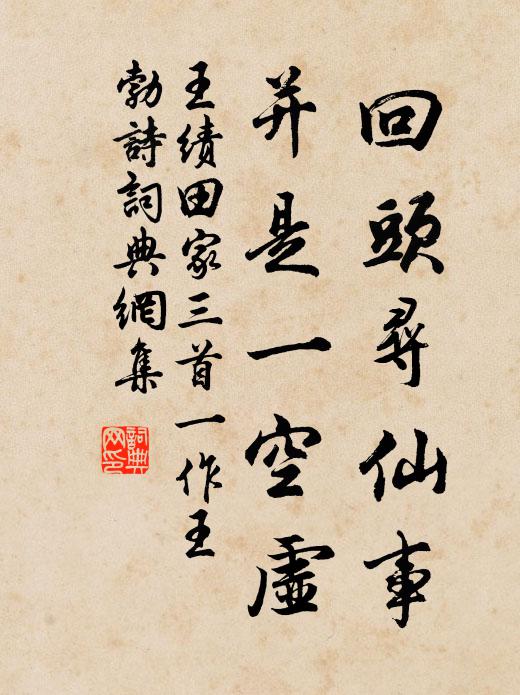 回頭尋仙事
并是一空虛
王績田家三首一作王
勃詩詞典網集
詞典
网印